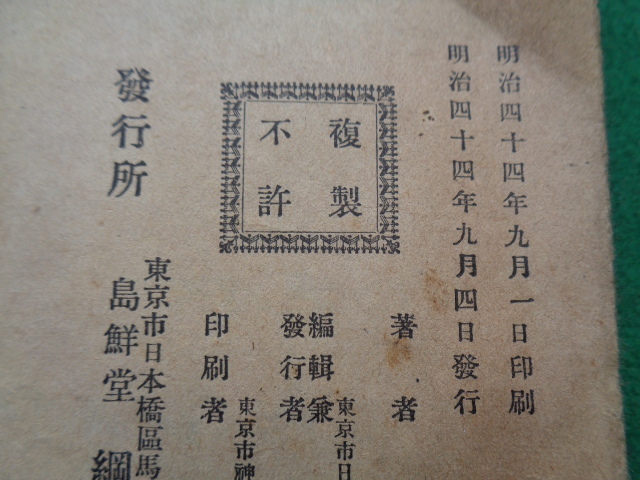 明治四十四年九月一日印刷
明治四十四年九月四日發行
複製
不許
著者
編輯兼
發行者
東京市日
印刷者
東京市神
發行所
東京市日本橋區馬
島鮮堂 綱